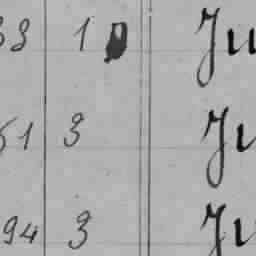 38 1 Ju
61 3 Ju
94 3 Ju